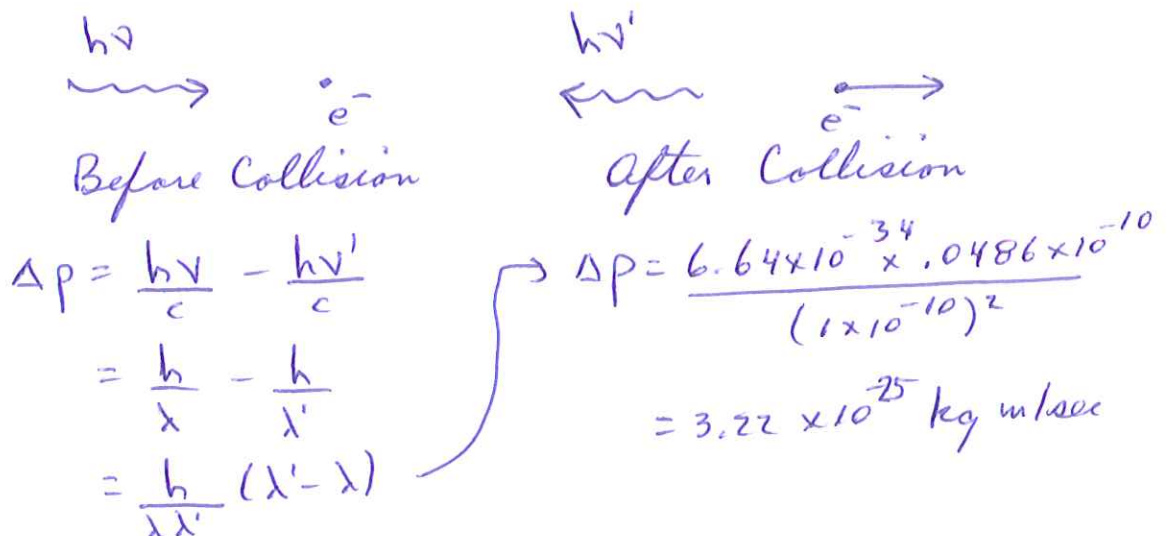 hν
e⁻
Before Collision
hν'
e⁻
After Collision
Δp = hν/c - hν'/c
= h/λ - h/λ'
= h/λλ' (λ'-λ)
→ Δp = 6.64x10⁻³⁴ x .0486x10⁻¹⁰ / (1x10⁻¹⁰)²
= 3.22 x10⁻²⁵ kg m/sec